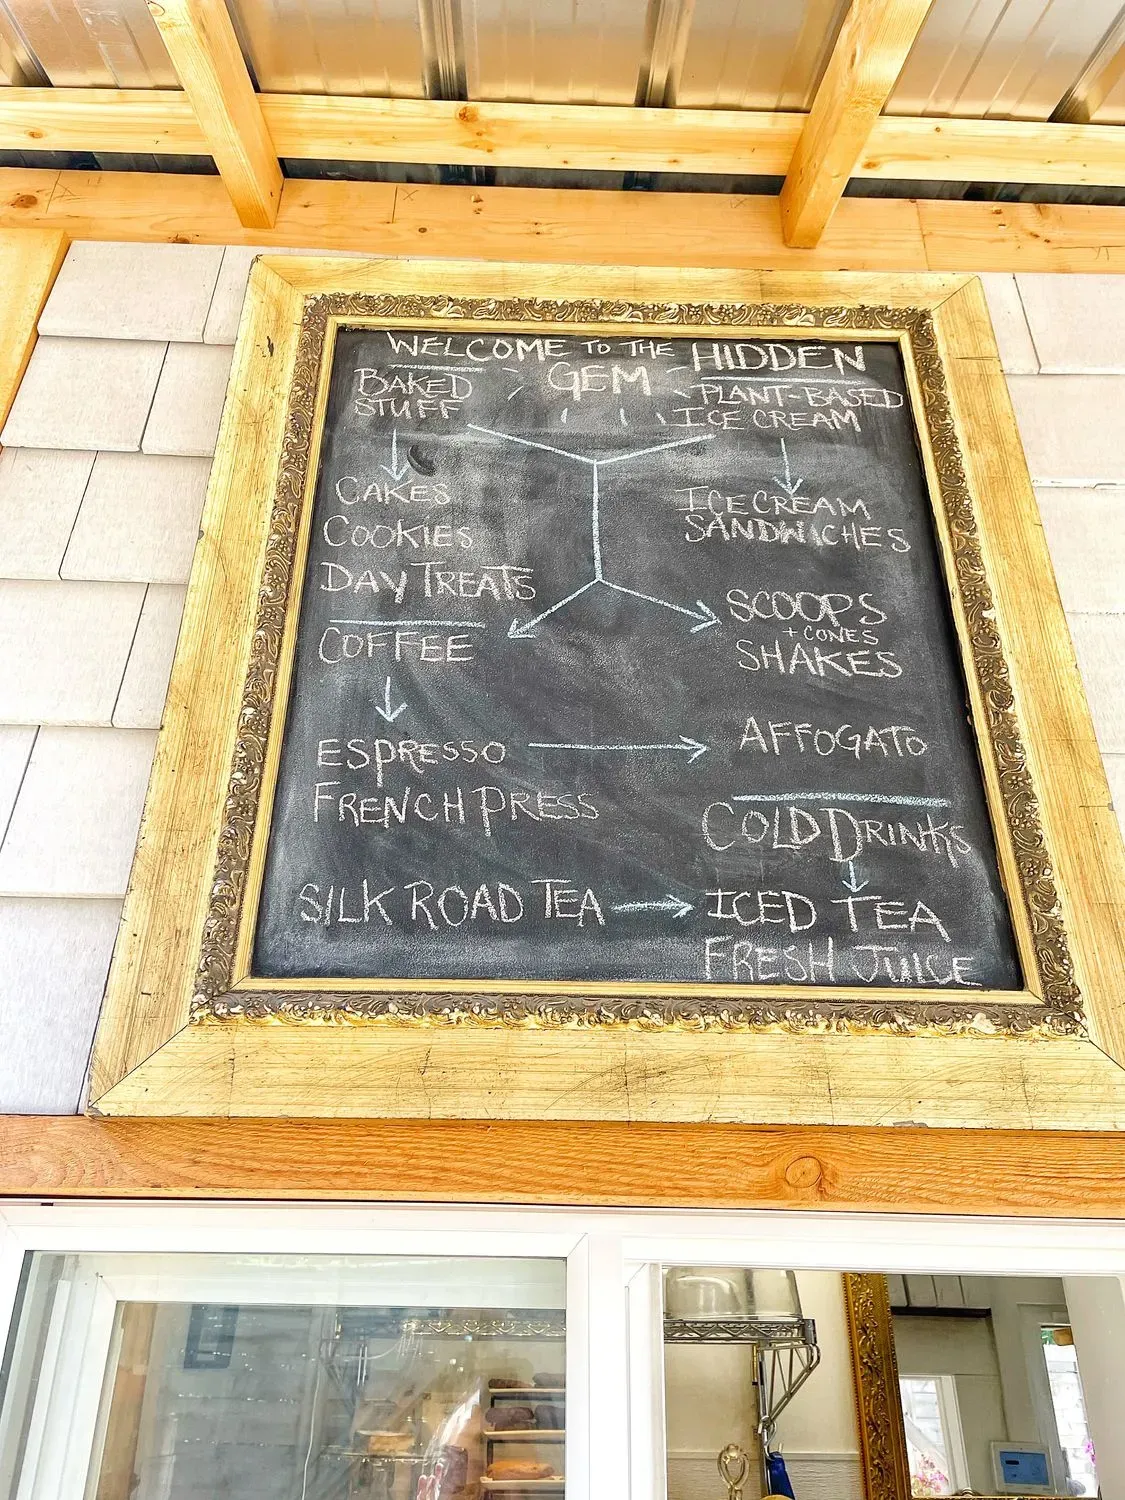 WELCOME TO THE HIDDEN
GEM
BAKED
STUFF
CAKES
COOKIES
DAY TREATS
COFFEE
ESPRESSO
FRENCH PRESS
SILK ROAD TEA
PLANT-BASED
ICE CREAM
ICE CREAM
SANDWICHES
SCOOPS
+ CONES
SHAKES
AFFOGATO
COLD DRINKS
ICED TEA
FRESH JUICE